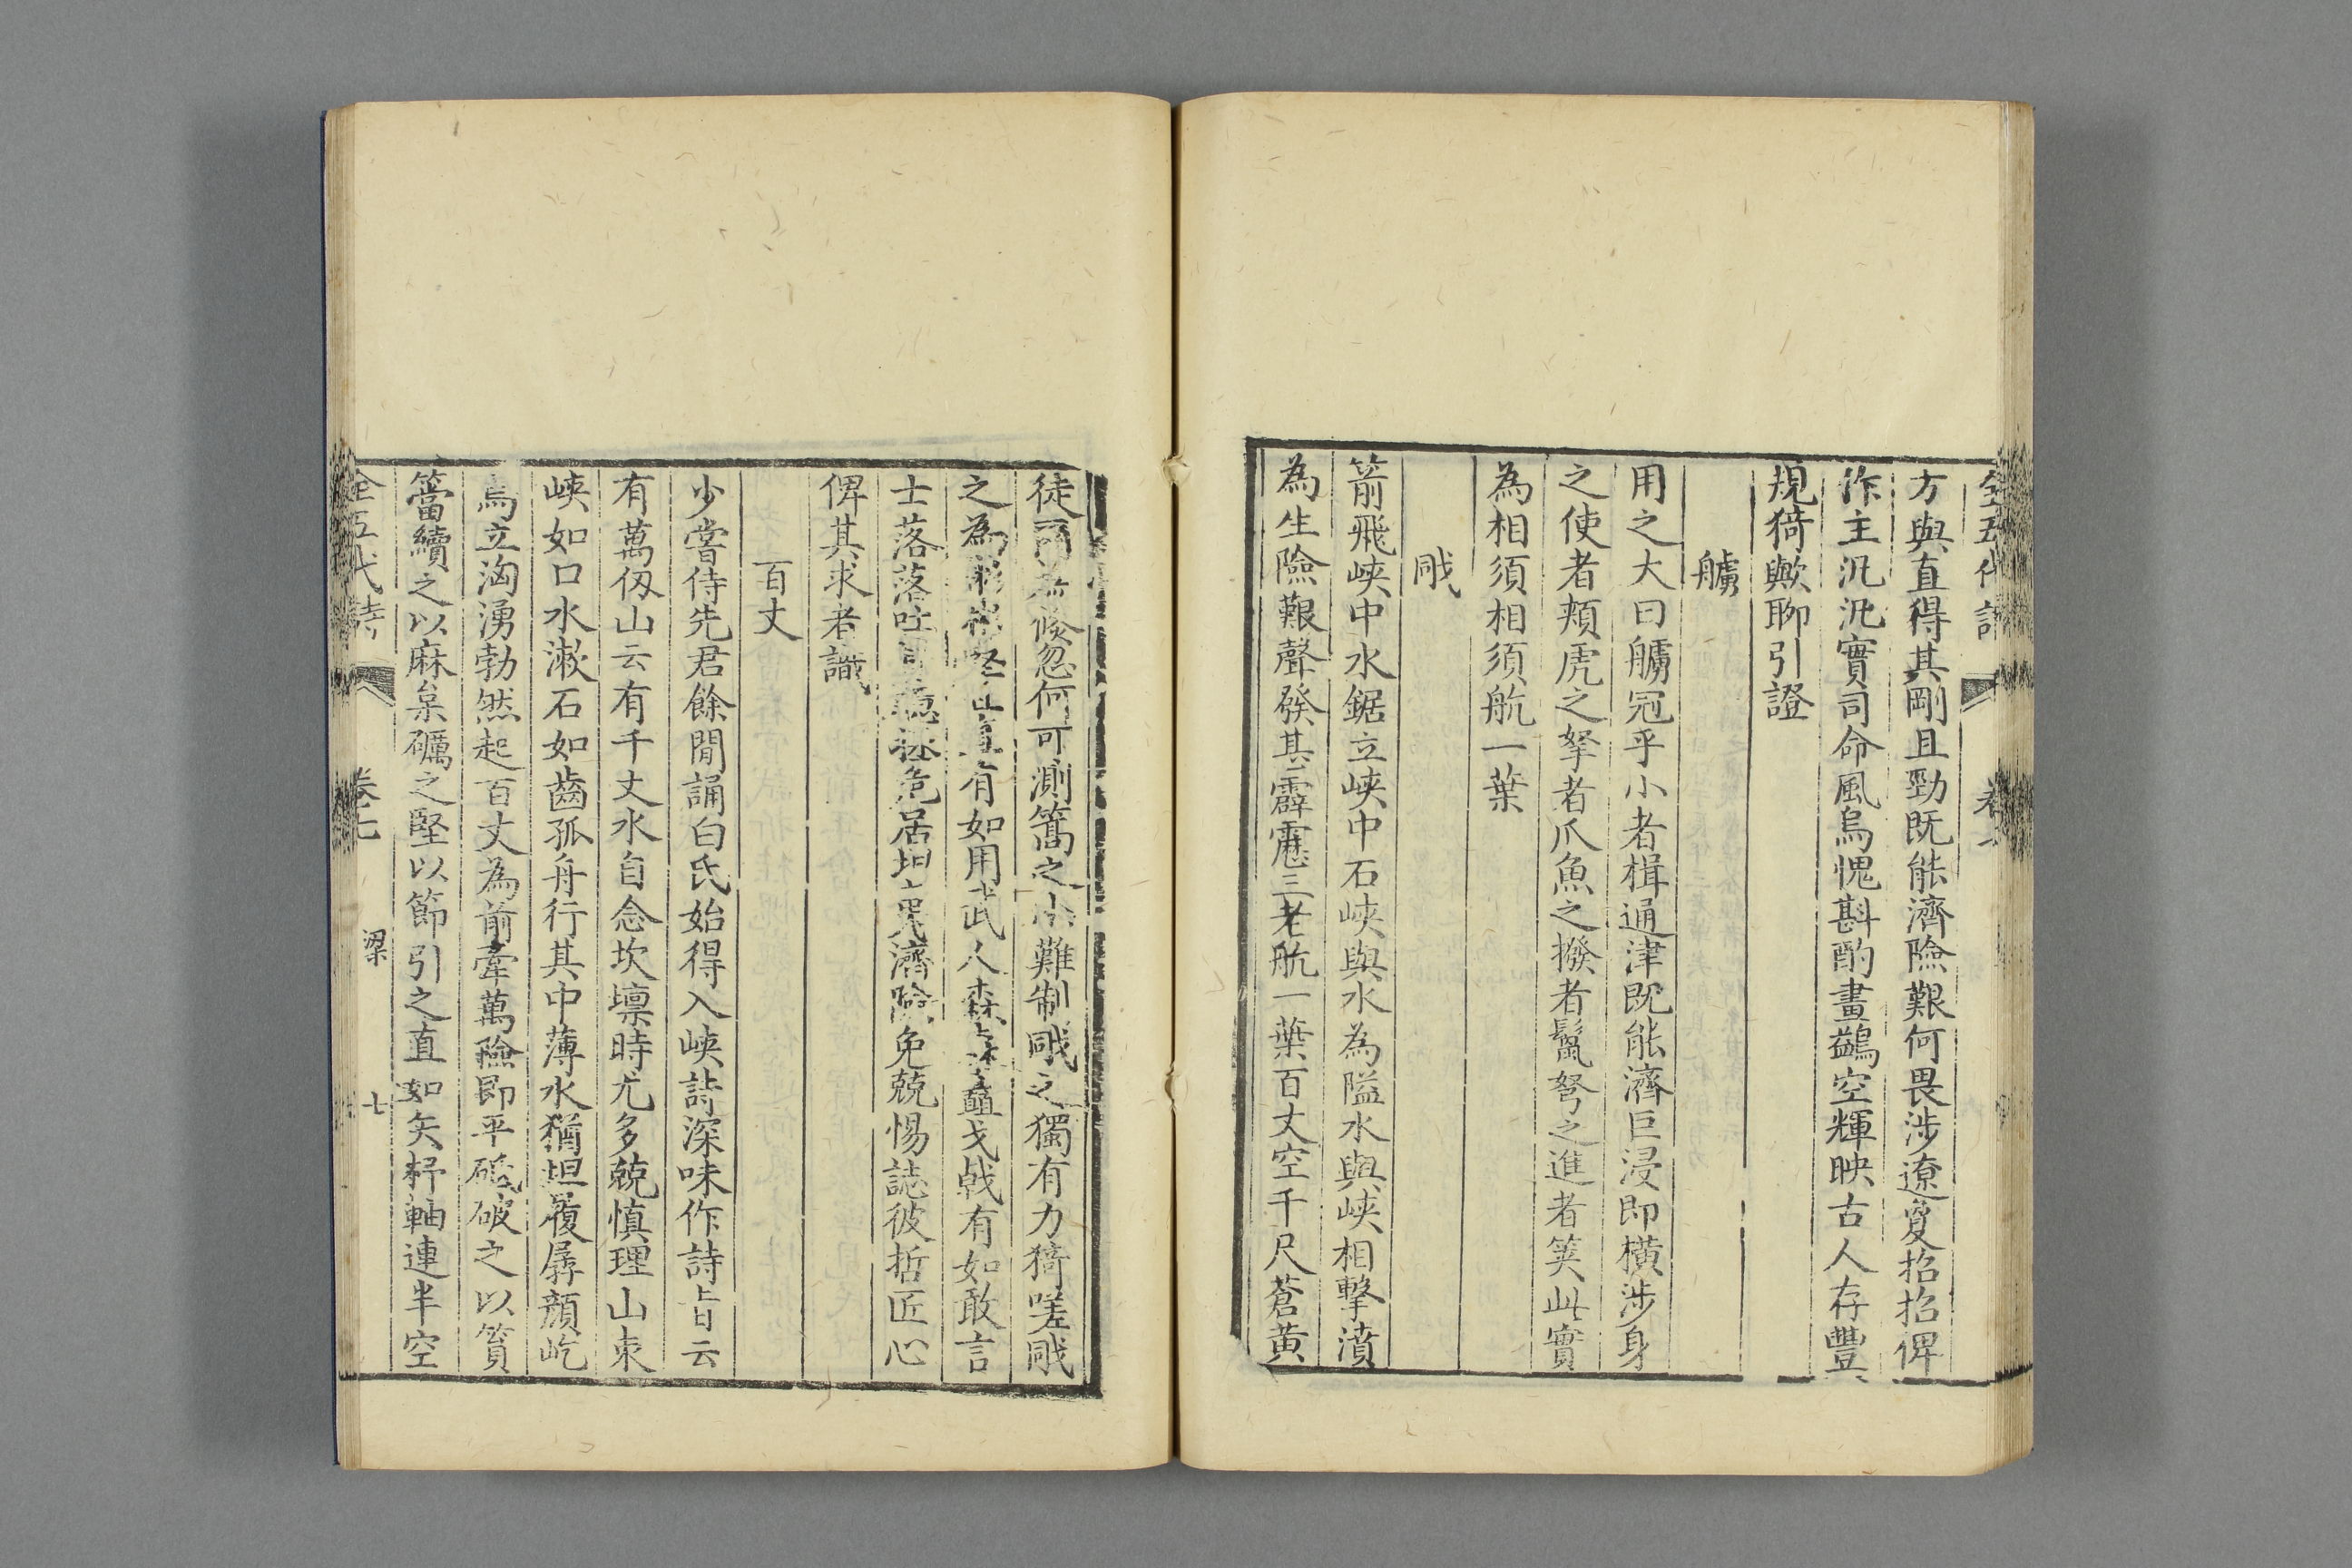 全五代詩 卷七
方與直得其剛且勁既能濟險艱何畏涉遼夐招招俾
作主汎汎實司命風烏愧斟酌畫鷁空輝映古人存豐
規猗歟聊引證
艣
用之大曰艣冠乎小者楫通津既能濟巨浸即橫涉身
之使者頰虎之拏者爪魚之撥者鬣弩之進者筴此實
為相須相須航一葉
戙
箭飛峽中水鋸立峽中石峽與水為隘水與峽相擊濆
為生險艱聲發其霹靂三老航一葉百丈空千尺蒼黃
徒爾為倏忽何可測篙之小難制戙之獨有力猗嗟戙
之為彬彬堅且直有如用武人森森矗戈戟有如敢言
士落落吐胸臆拯危居坦夷濟險免兢惕誌彼哲匠心
俾其求者識
百丈
少嘗侍先君餘閒誦白氏始得入峽詩深味作詩旨云
有萬仭山云有千丈水自念坎壈時尤多兢慎理山束
峽如口水漱石如齒孤舟行其中薄水猶坦履孱顏屹
焉立洶湧勃然起百丈為前牽萬險即平砥破之以篔
簹續之以麻枲礪之堅以節引之直如矢杼軸連半空
全五代詩 卷七 梁 七